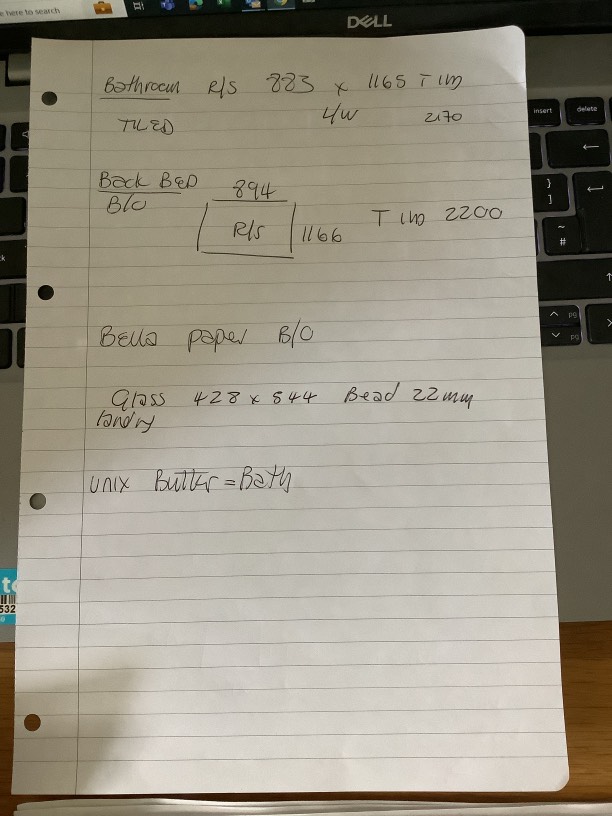 here to search
DELL
Bathroom R/S 883 x 1165 T
TILED L/W 2170
Back BED
B/O
894
R/S
1166 T 2200
paper B/O
Glass 428 x 544 Bead 22mm
landry
unix Butter = Bath
insert
delete
}
]
~
#
pg
pg
532